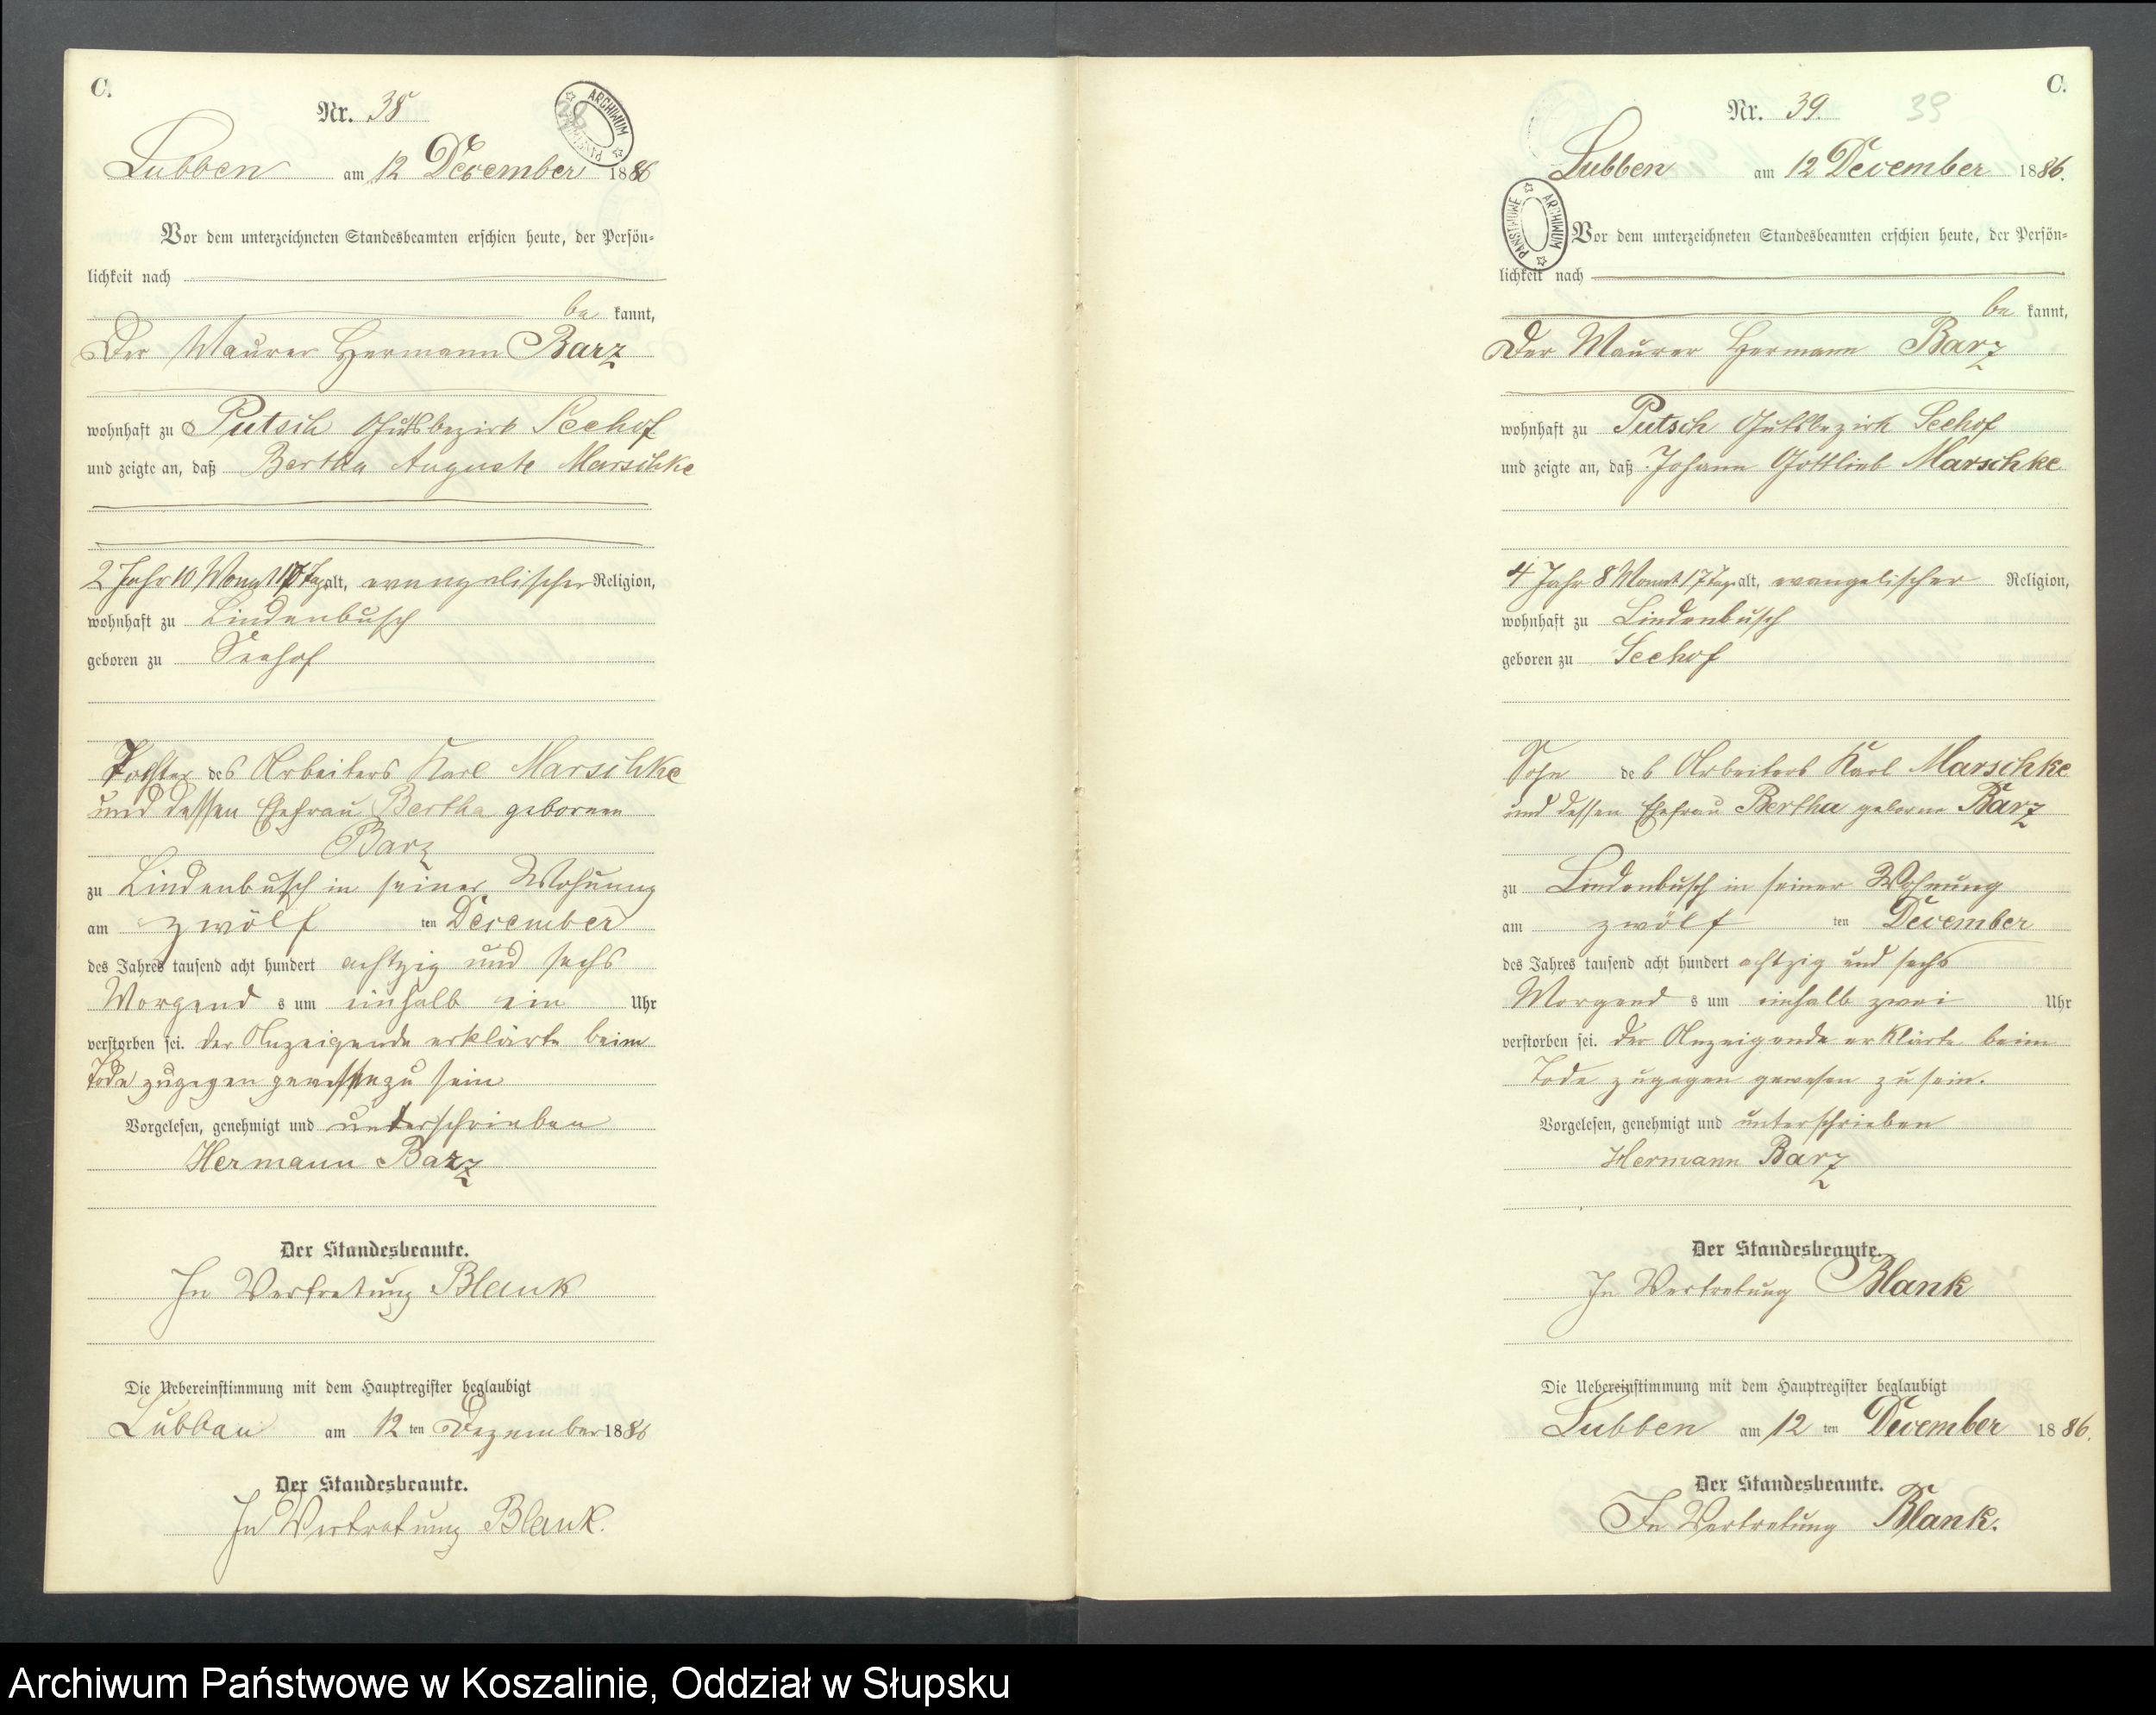 C.
Nr. 38
ARCHIWUM PAŃSTWOWE
Lubben am 12 December 1886
Vor dem unterzeichneten Standesbeamten erschien heute, der Persön=
lichkeit nach
be kannt,
Der Maurer Hermann Barz
wohnhaft zu Putsch Gutsbezirk Seehof
und zeigte an, daß Bertha Auguste Marschke
2 Jahr 10 Monat Tage alt, evangelischer Religion,
wohnhaft zu Lindenbusch
geboren zu Seehof
Tochter des Arbeiters Karl Marschke
und dessen Ehefrau Bertha geboren
Barz
zu Lindenbusch in seiner Wohnung
am zwölf ten December
des Jahres tausend acht hundert achtzig und sechs
Morgend s um einhalb ein Uhr
verstorben sei. der Anzeigende erklärte beim
Tode zugegen zu sein
Vorgelesen, genehmigt und unterschrieben
Hermann Barz
Der Standesbeamte.
In Vertretung Blank
Die Uebereinstimmung mit dem Hauptregister beglaubigt
Lübben am 12 ten Dezember 1886
Der Standesbeamte.
In Vertretung Blank.
C.
Nr. 39. 39
Lubben am 12 December 1886.
PAŃSTWOWE ARCHIWUM
Vor dem unterzeichneten Standesbeamten erschien heute, der Persön=
lichkeit nach
be kannt,
Der Maurer Hermann Barz
wohnhaft zu Putsch Gutsbezirk Seehof
und zeigte an, daß Johann Gottlieb Marschke
4 Jahr 8 Monat 17 Tage alt, evangelischer Religion,
wohnhaft zu Lindenbusch
geboren zu Seehof
Sohn des Arbeiters Karl Marschke
und dessen Ehefrau Bertha geborne Barz
zu Lindenbusch in seiner Wohnung
am zwölf ten December
des Jahres tausend acht hundert achtzig und sechs
Morgend s um einhalb zwei Uhr
verstorben sei. Der Anzeigende erklärte beim
Tode zugegen gewesen zu sein.
Vorgelesen, genehmigt und unterschrieben
Hermann Barz
Der Standesbeamte.
In Vertretung Blank
Die Uebereinstimmung mit dem Hauptregister beglaubigt
Lubben am 12 ten December 1886.
Der Standesbeamte.
In Vertretung Blank.
Archiwum Państwowe w Koszalinie, Oddział w Słupsku